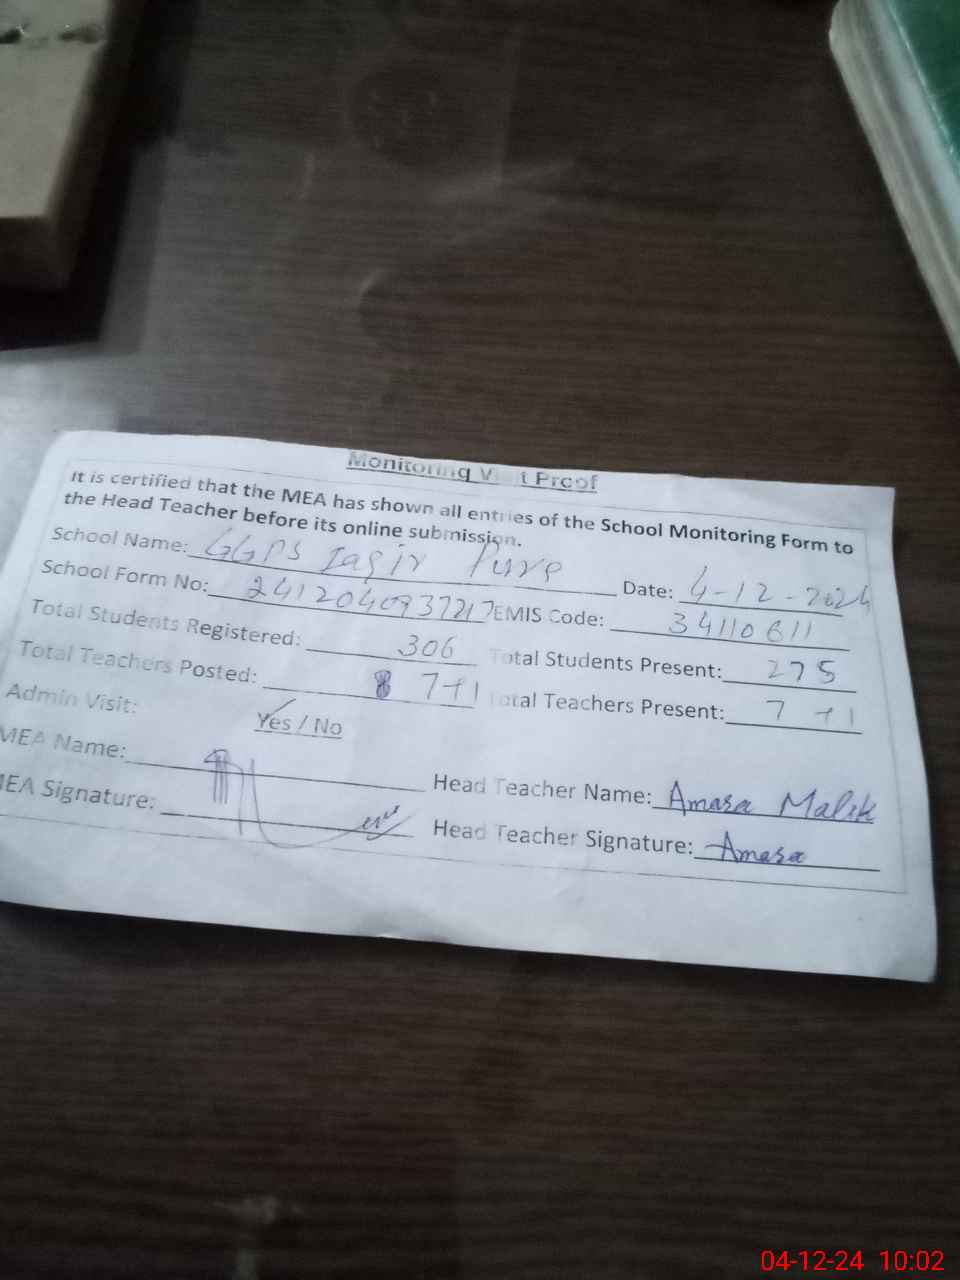 Monitoring Visit Proof
It is certified that the MEA has shown all entries of the School Monitoring Form to
the Head Teacher before its online submission.
School Name: GGPS Jagir Pura Date: 4-12-2024
School Form No: EMIS Code: 34110611
Total Students Registered: 306 Total Students Present: 275
Total Teachers Posted: 7+1 Total Teachers Present: 7+1
Admin Visit: Yes / No
MEA Name: Head Teacher Name: Amara Malik
MEA Signature: Head Teacher Signature: Amara
04-12-24 10:02